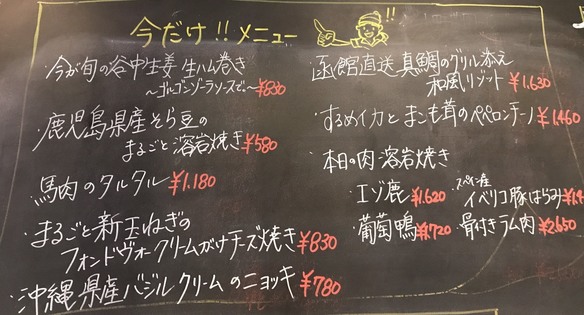 今だけ!!メニュー
!!
今が旬の谷中生姜 生ハム巻き
~ゴルゴンゾーラソースで~ ¥830
鹿児島県産そら豆の
まるごと溶岩焼き ¥580
馬肉のタルタル ¥1.180
まるごと新玉ねぎの
フォンドヴォークリームがけチーズ焼き ¥830
沖縄県産バジルクリームのニョッキ ¥780
函館直送 真鯛のグリル添え
和風リゾット ¥1.630
するめイカとまいも茸のペペロンチーノ ¥1.460
本日の肉 溶岩焼き
エゾ鹿 ¥1.620
スペイン産
イベリコ豚はらみ ¥1.4
葡萄鴨 ¥1.720
骨付きラム肉 ¥2.650